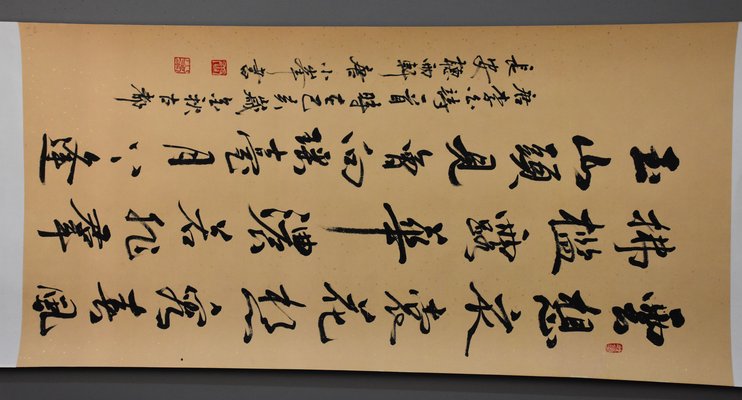 雲想衣裳花想容春風
拂檻露華濃若非羣
玉山頭見會向瑤臺月下逢
唐李白詩一首時在己亥歲秋古都
長安聽雨軒小峰書